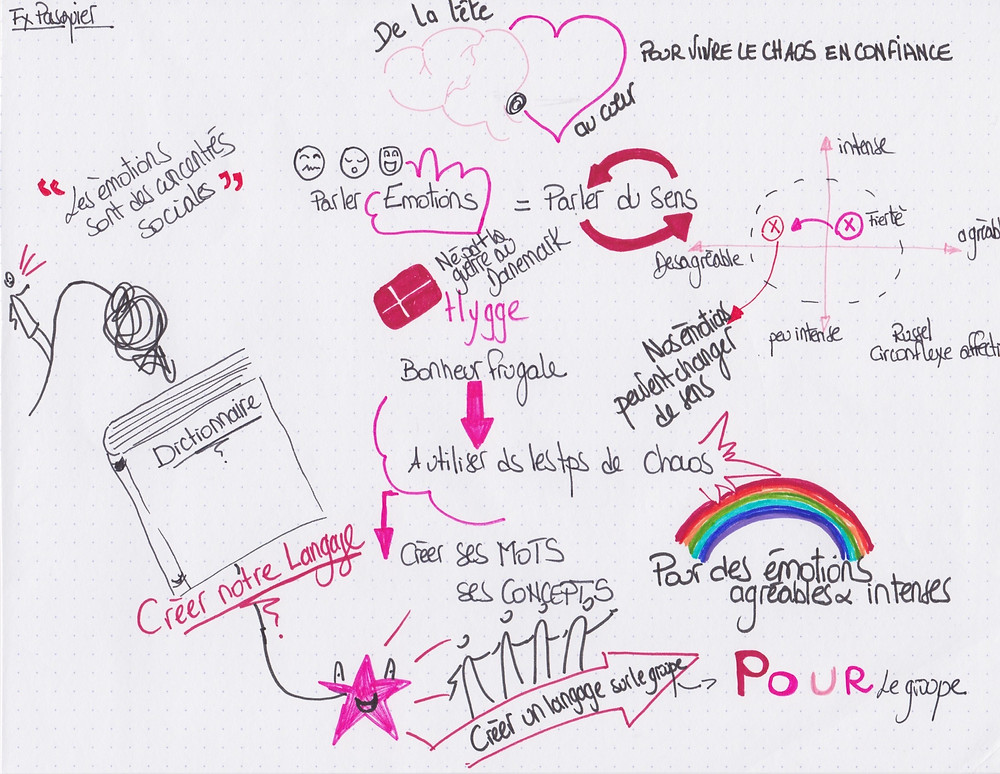 Fx Pasquier
De la tête
au cœur
POUR VIVRE LE CHAOS EN CONFIANCE
“ Les émotions
sont des concentrés
sociales ”
Parler Emotions = Parler du sens
intense
Fierté
agréabl
Desagréable
peu intense
Russel
Circonflexe affecti
Nos émotions
peuvent changer
de sens
Né pdt la
guerre au
Danemark
Hygge
Bonheur frugale
A utiliser ds les tps de chaos
Dictionnaire
?
Créer notre Langage
?
Créer ses MOTS
ses CONCEPTS
Pour des émotions
agréables & intenses
Créer un langage sur le groupe
POUR Le groupe